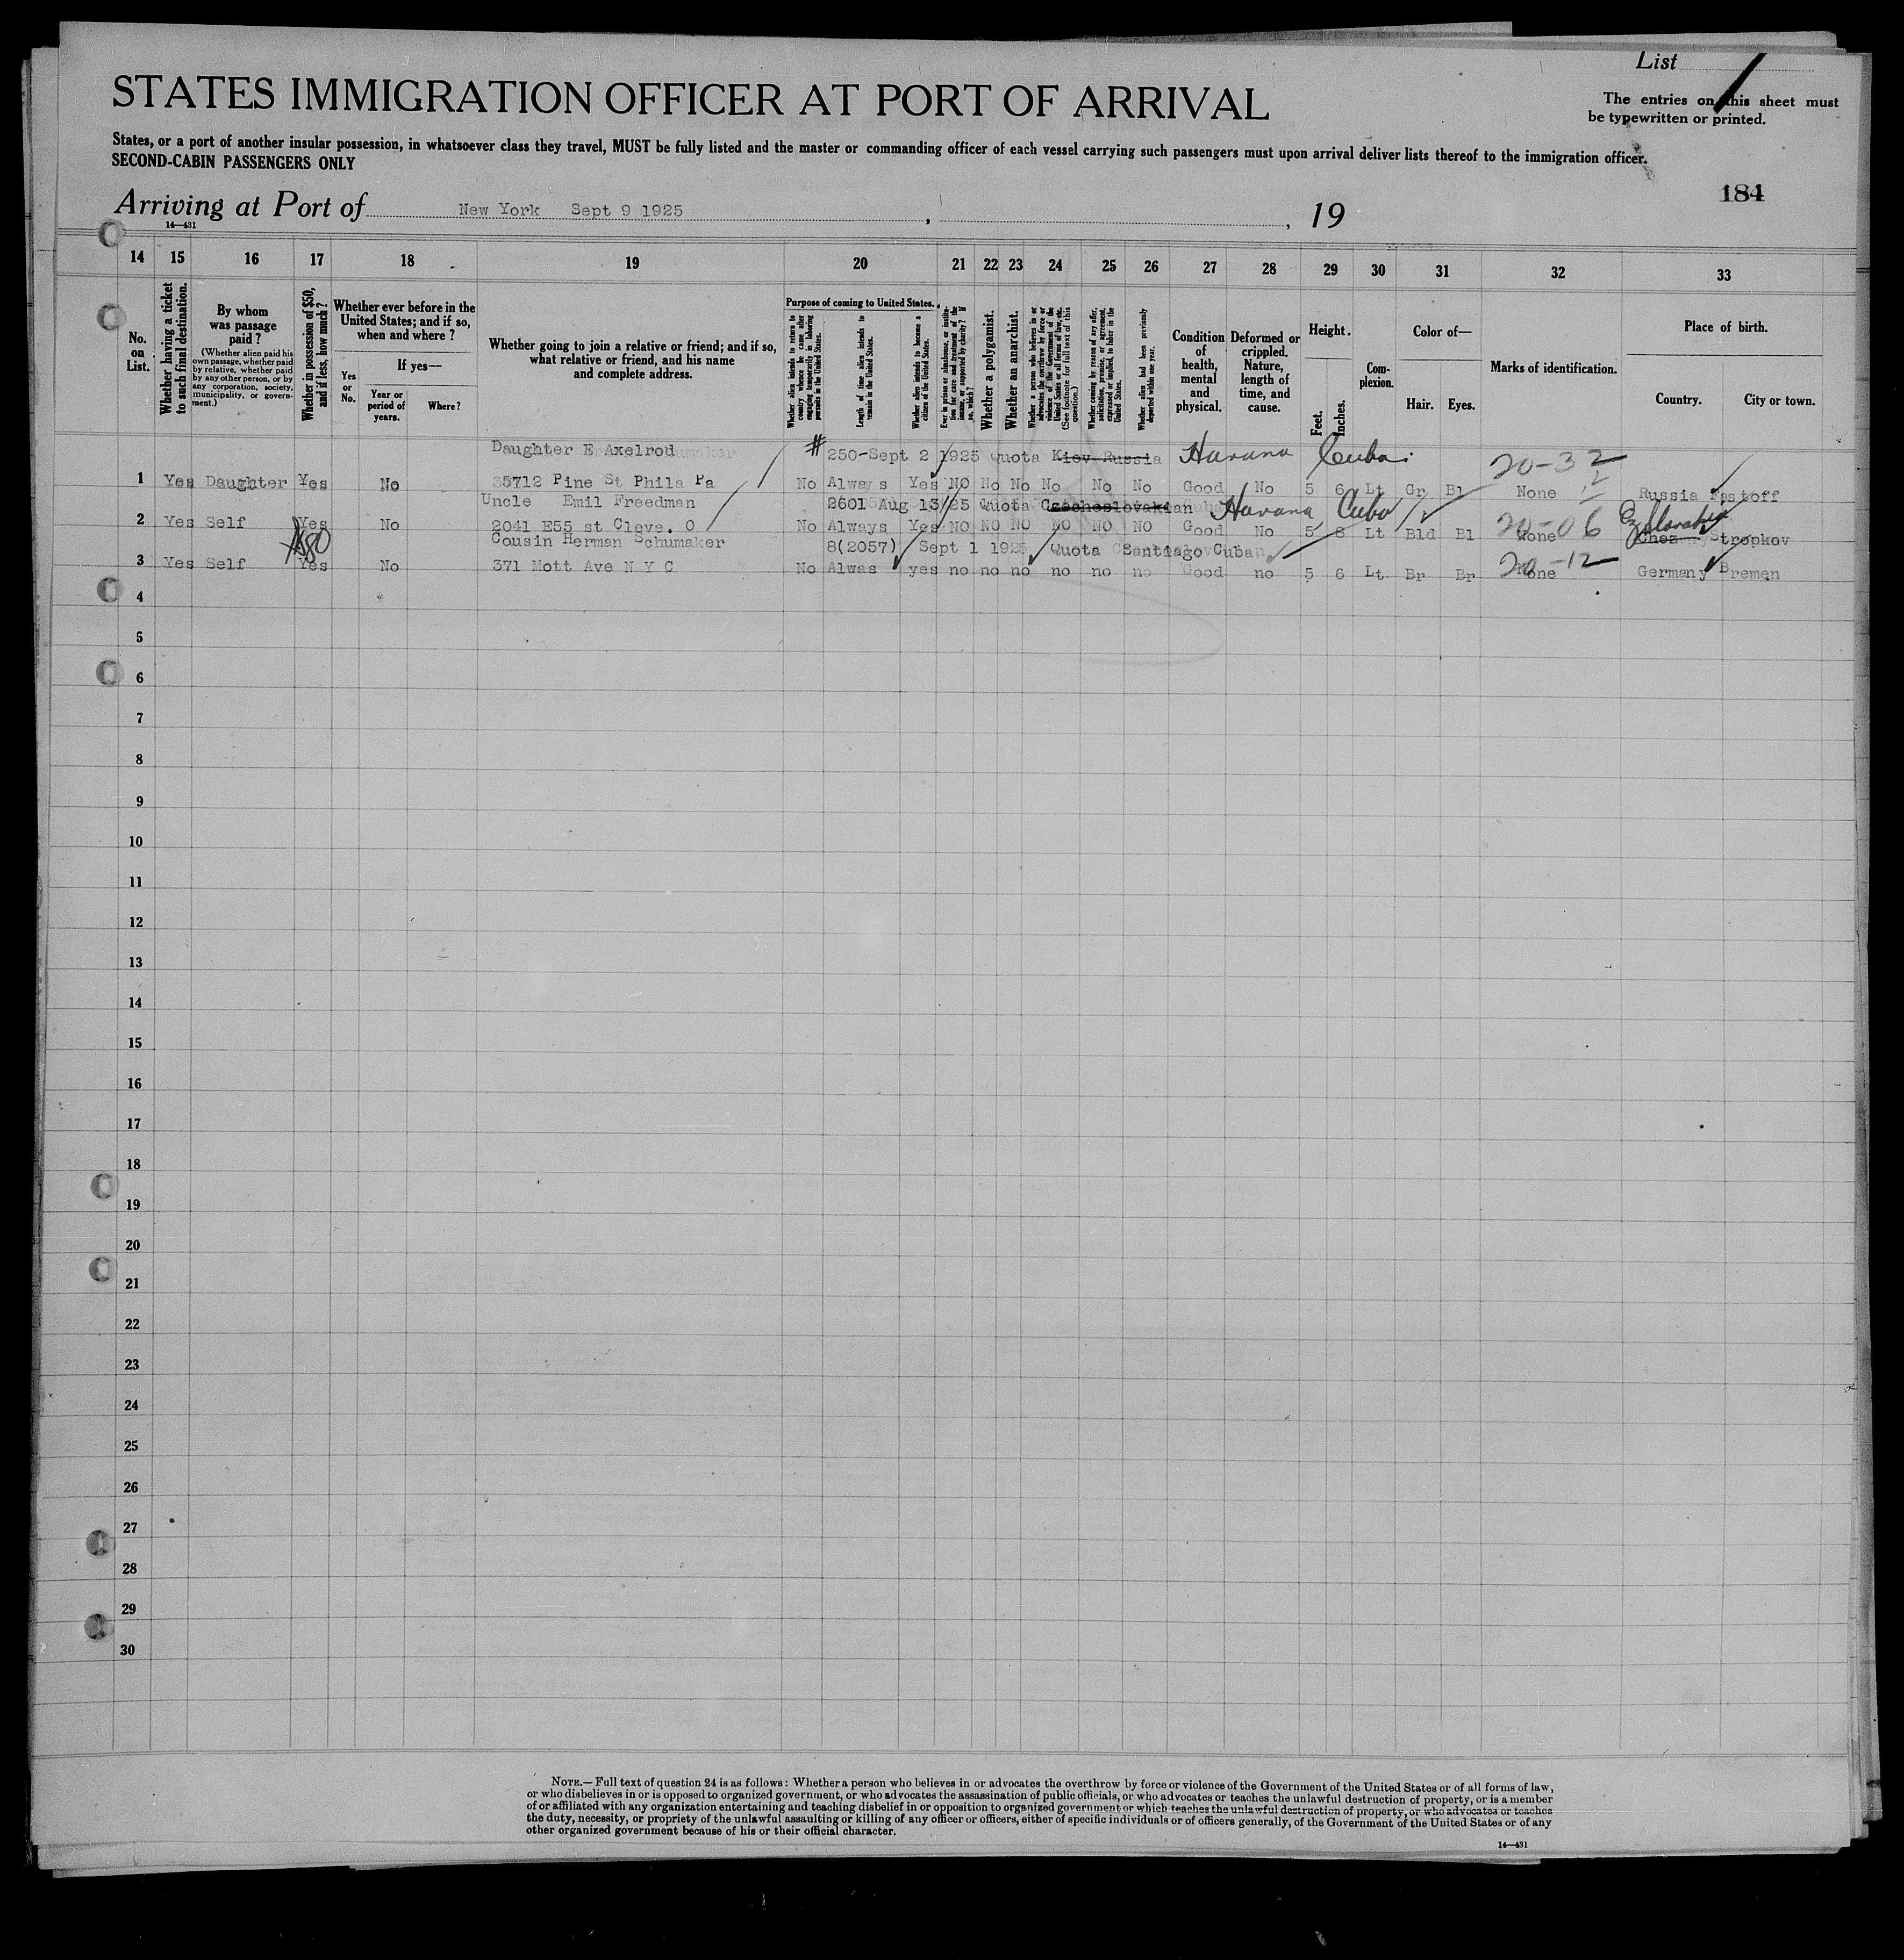 List 1
STATES IMMIGRATION OFFICER AT PORT OF ARRIVAL
The entries on this sheet must
be typewritten or printed.
States, or a port of another insular possession, in whatsoever class they travel, MUST be fully listed and the master or commanding officer of each vessel carrying such passengers must upon arrival deliver lists thereof to the immigration officer.
SECOND-CABIN PASSENGERS ONLY
184
Arriving at Port of New York Sept 9 1925 , , 19
14—431
14 15 16 17 18 19 20 21 22 23 24 25 26 27 28 29 30 31 32 33
No. on List.
Whether having a ticket to such final destination.
By whom was passage paid?
(Whether alien paid his own passage, whether paid by relative, whether paid by any other person, or by any corporation, society, municipality, or government.)
Whether in possession of $50, and if less, how much?
Whether ever before in the United States; and if so, when and where?
Yes or No.
If yes—
Year or period of years.
Where?
Whether going to join a relative or friend; and if so, what relative or friend, and his name and complete address.
Purpose of coming to United States.
Whether alien intends to return to country whence he came after engaging temporarily in laboring pursuits in the United States.
Length of time alien intends to remain in the United States.
Whether alien intends to become a citizen of the United States.
Ever in prison or almshouse, or institution for care and treatment of the insane, or supported by charity? If so, which?
Whether a polygamist.
Whether an anarchist.
Whether a person who believes in or advocates the overthrow by force or violence of the Government of the United States or all forms of law, etc. (See footnote for full text of this question.)
Whether coming by reason of any offer, solicitation, promise, or agreement, expressed or implied, to labor in the United States.
Whether alien had been previously deported within one year.
Condition of health, mental and physical.
Deformed or crippled. Nature, length of time, and cause.
Height.
Feet. Inches.
Complexion.
Color of—
Hair. Eyes.
Marks of identification.
Place of birth.
Country. City or town.
Daughter E Axelrod # 250-Sept 2 1925 Quota Kiev Russia Havana Cuba 20-32
1 Yes Daughter Yes No 35712 Pine St Phila Pa No Always Yes NO No No No No No Good No 5 6 Lt Gr Bl None Russia Fastoff
Uncle Emil Freedman 2601 Aug 13/25 Quota Czechoslovakian Havana Cuba Cz Slovakia
2 Yes Self Yes No 2041 E55 st Cleve. O No Always Yes NO NO NO NO NO NO Good No 5 8 Lt Bld Bl None 20-06 Chez Stropkov
$80
Cousin Herman Schumaker 8(2057) Sept 1 1925 Quota Santiago Cuba
3 Yes Self Yes No 371 Mott Ave N Y C No Alwas yes no no no no no no Good no 5 6 Lt Br Br None 20-12 Germany Bremen
4
5
6
7
8
9
10
11
12
13
14
15
16
17
18
19
20
21
22
23
24
25
26
27
28
29
30
NOTE.—Full text of question 24 is as follows: Whether a person who believes in or advocates the overthrow by force or violence of the Government of the United States or of all forms of law,
or who disbelieves in or is opposed to organized government, or who advocates the assassination of public officials, or who advocates or teaches the unlawful destruction of property, or is a member
of or affiliated with any organization entertaining and teaching disbelief in or opposition to organized government or which teaches the unlawful destruction of property, or who advocates or teaches
the duty, necessity, or propriety of the unlawful assaulting or killing of any officer or officers, either of specific individuals or of officers generally, of the Government of the United States or of any
other organized government because of his or their official character.
14—431